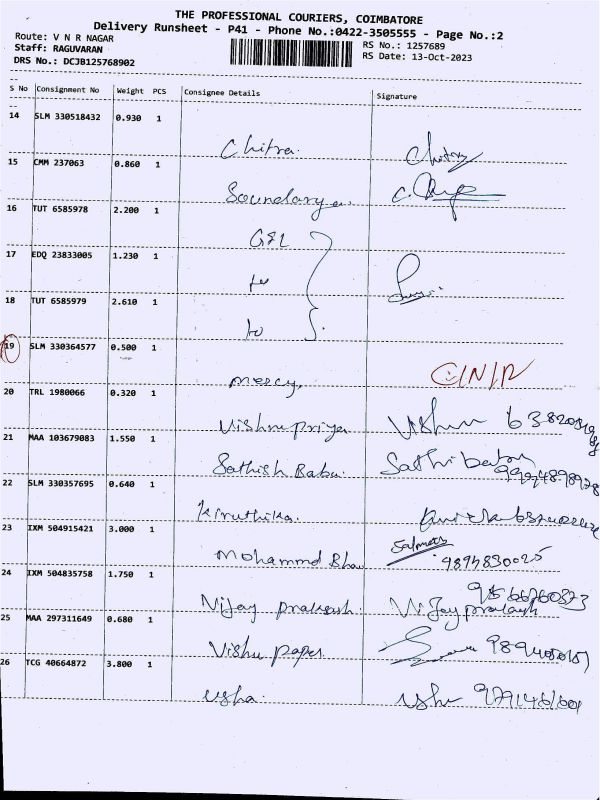 THE PROFESSIONAL COURIERS, COIMBATORE
Delivery Runsheet - P41 - Phone No.:0422-3505555 - Page No.:2
Route: V N R NAGAR
RS No.: 1257689
Staff: RAGUVARAN
RS Date: 13-Oct-2023
DRS No.: DCJB125768902
S No Consignment No Weight PCS Consignee Details Signature
14 SLM 330518432 0.930 1
Chitra.
15 CMM 237063 0.860 1
Soundarya.
16 TUT 6585978 2.200 1
17 EDQ 23833005 1.230 1
to
18 TUT 6585979 2.610 1
to
19 SLM 330364577 0.500 1
mercy.
20 TRL 1980066 0.320 1
Vishnu priya Vishnu
21 MAA 103679083 1.550 1
Sathish Babu. Sathi babu
22 SLM 330357695 0.640 1
Kiruthika.
23 IXM 504915421 3.000 1
Mohammd
24 IXM 504835758 1.750 1
Vijay prakash. Vijay prakash
25 MAA 297311649 0.680 1
Vishu paper.
26 TCG 40664872 3.800 1
usha. usha